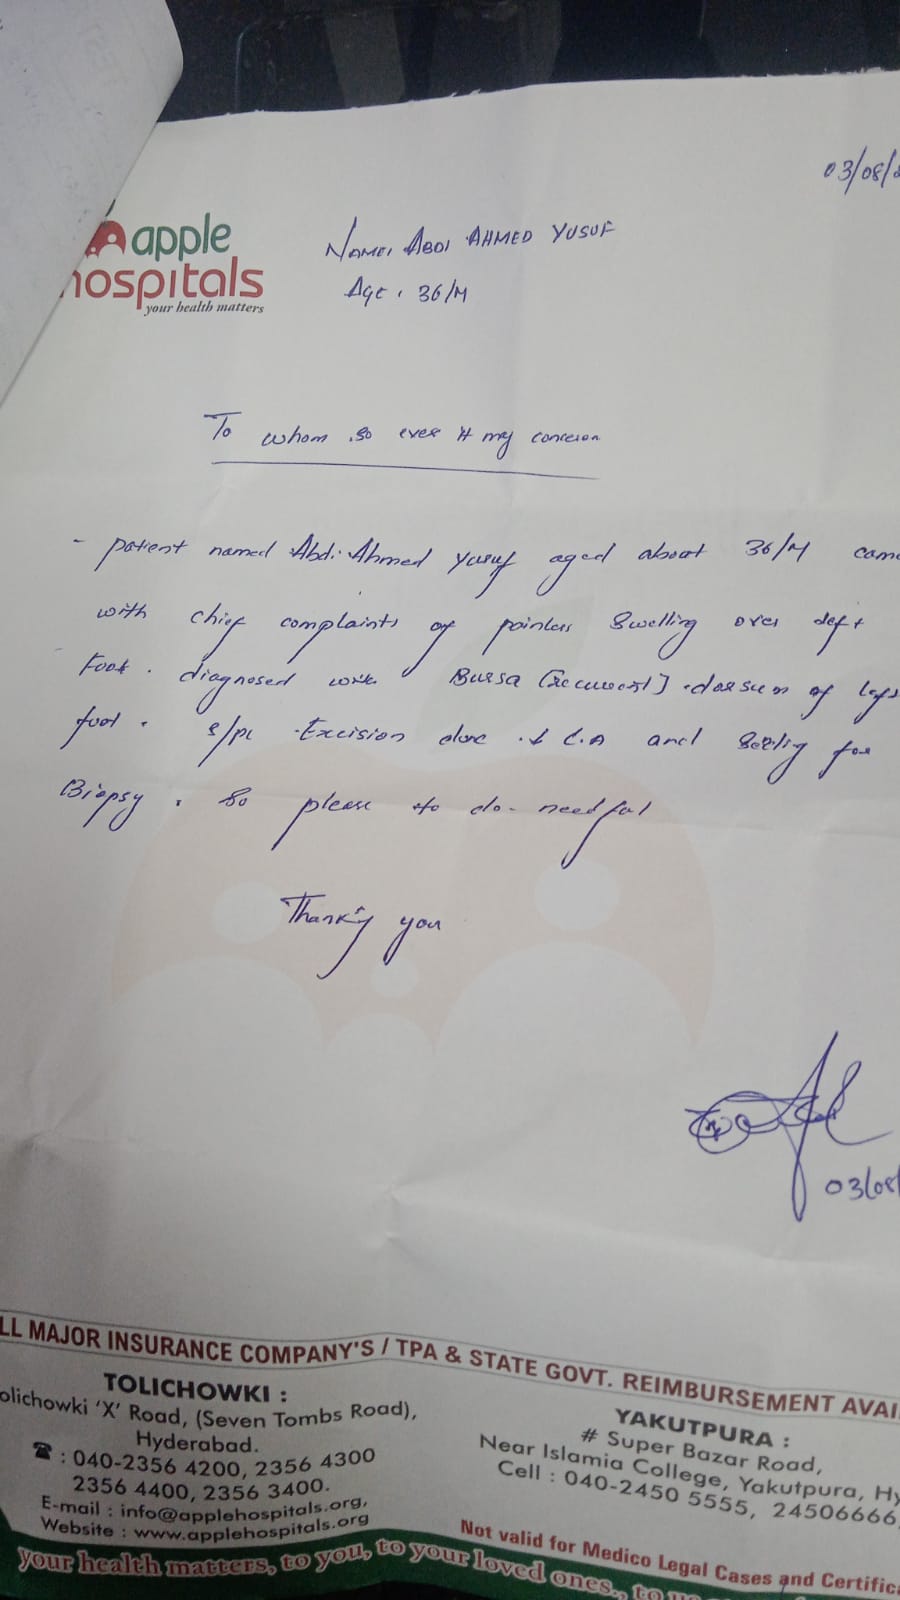 03/08/
apple
hospitals
your health matters
Name: ABDI AHMED YUSUF
Age. 36/M
To whom so ever it my concern
- patient named Abdi Ahmed Yusuf aged about 36/M came
with chief complaints of painless Swelling over left
Foot. diagnosed with Bursa dorsum of left
foot. Excision done and for
Biopsy. So please to do needful
Thank'g you
03/08/
LL MAJOR INSURANCE COMPANY'S / TPA & STATE GOVT. REIMBURSEMENT AVAI
TOLICHOWKI :
olichowki 'X' Road, (Seven Tombs Road),
Hyderabad.
☎ : 040-2356 4200, 2356 4300
2356 4400, 2356 3400.
E-mail : info@applehospitals.org,
Website : www.applehospitals.org
YAKUTPURA :
# Super Bazar Road,
Near Islamia College, Yakutpura, Hy
Cell : 040-2450 5555, 24506666,
Not valid for Medico Legal Cases and Certific
your health matters, to you, to your loved ones., to